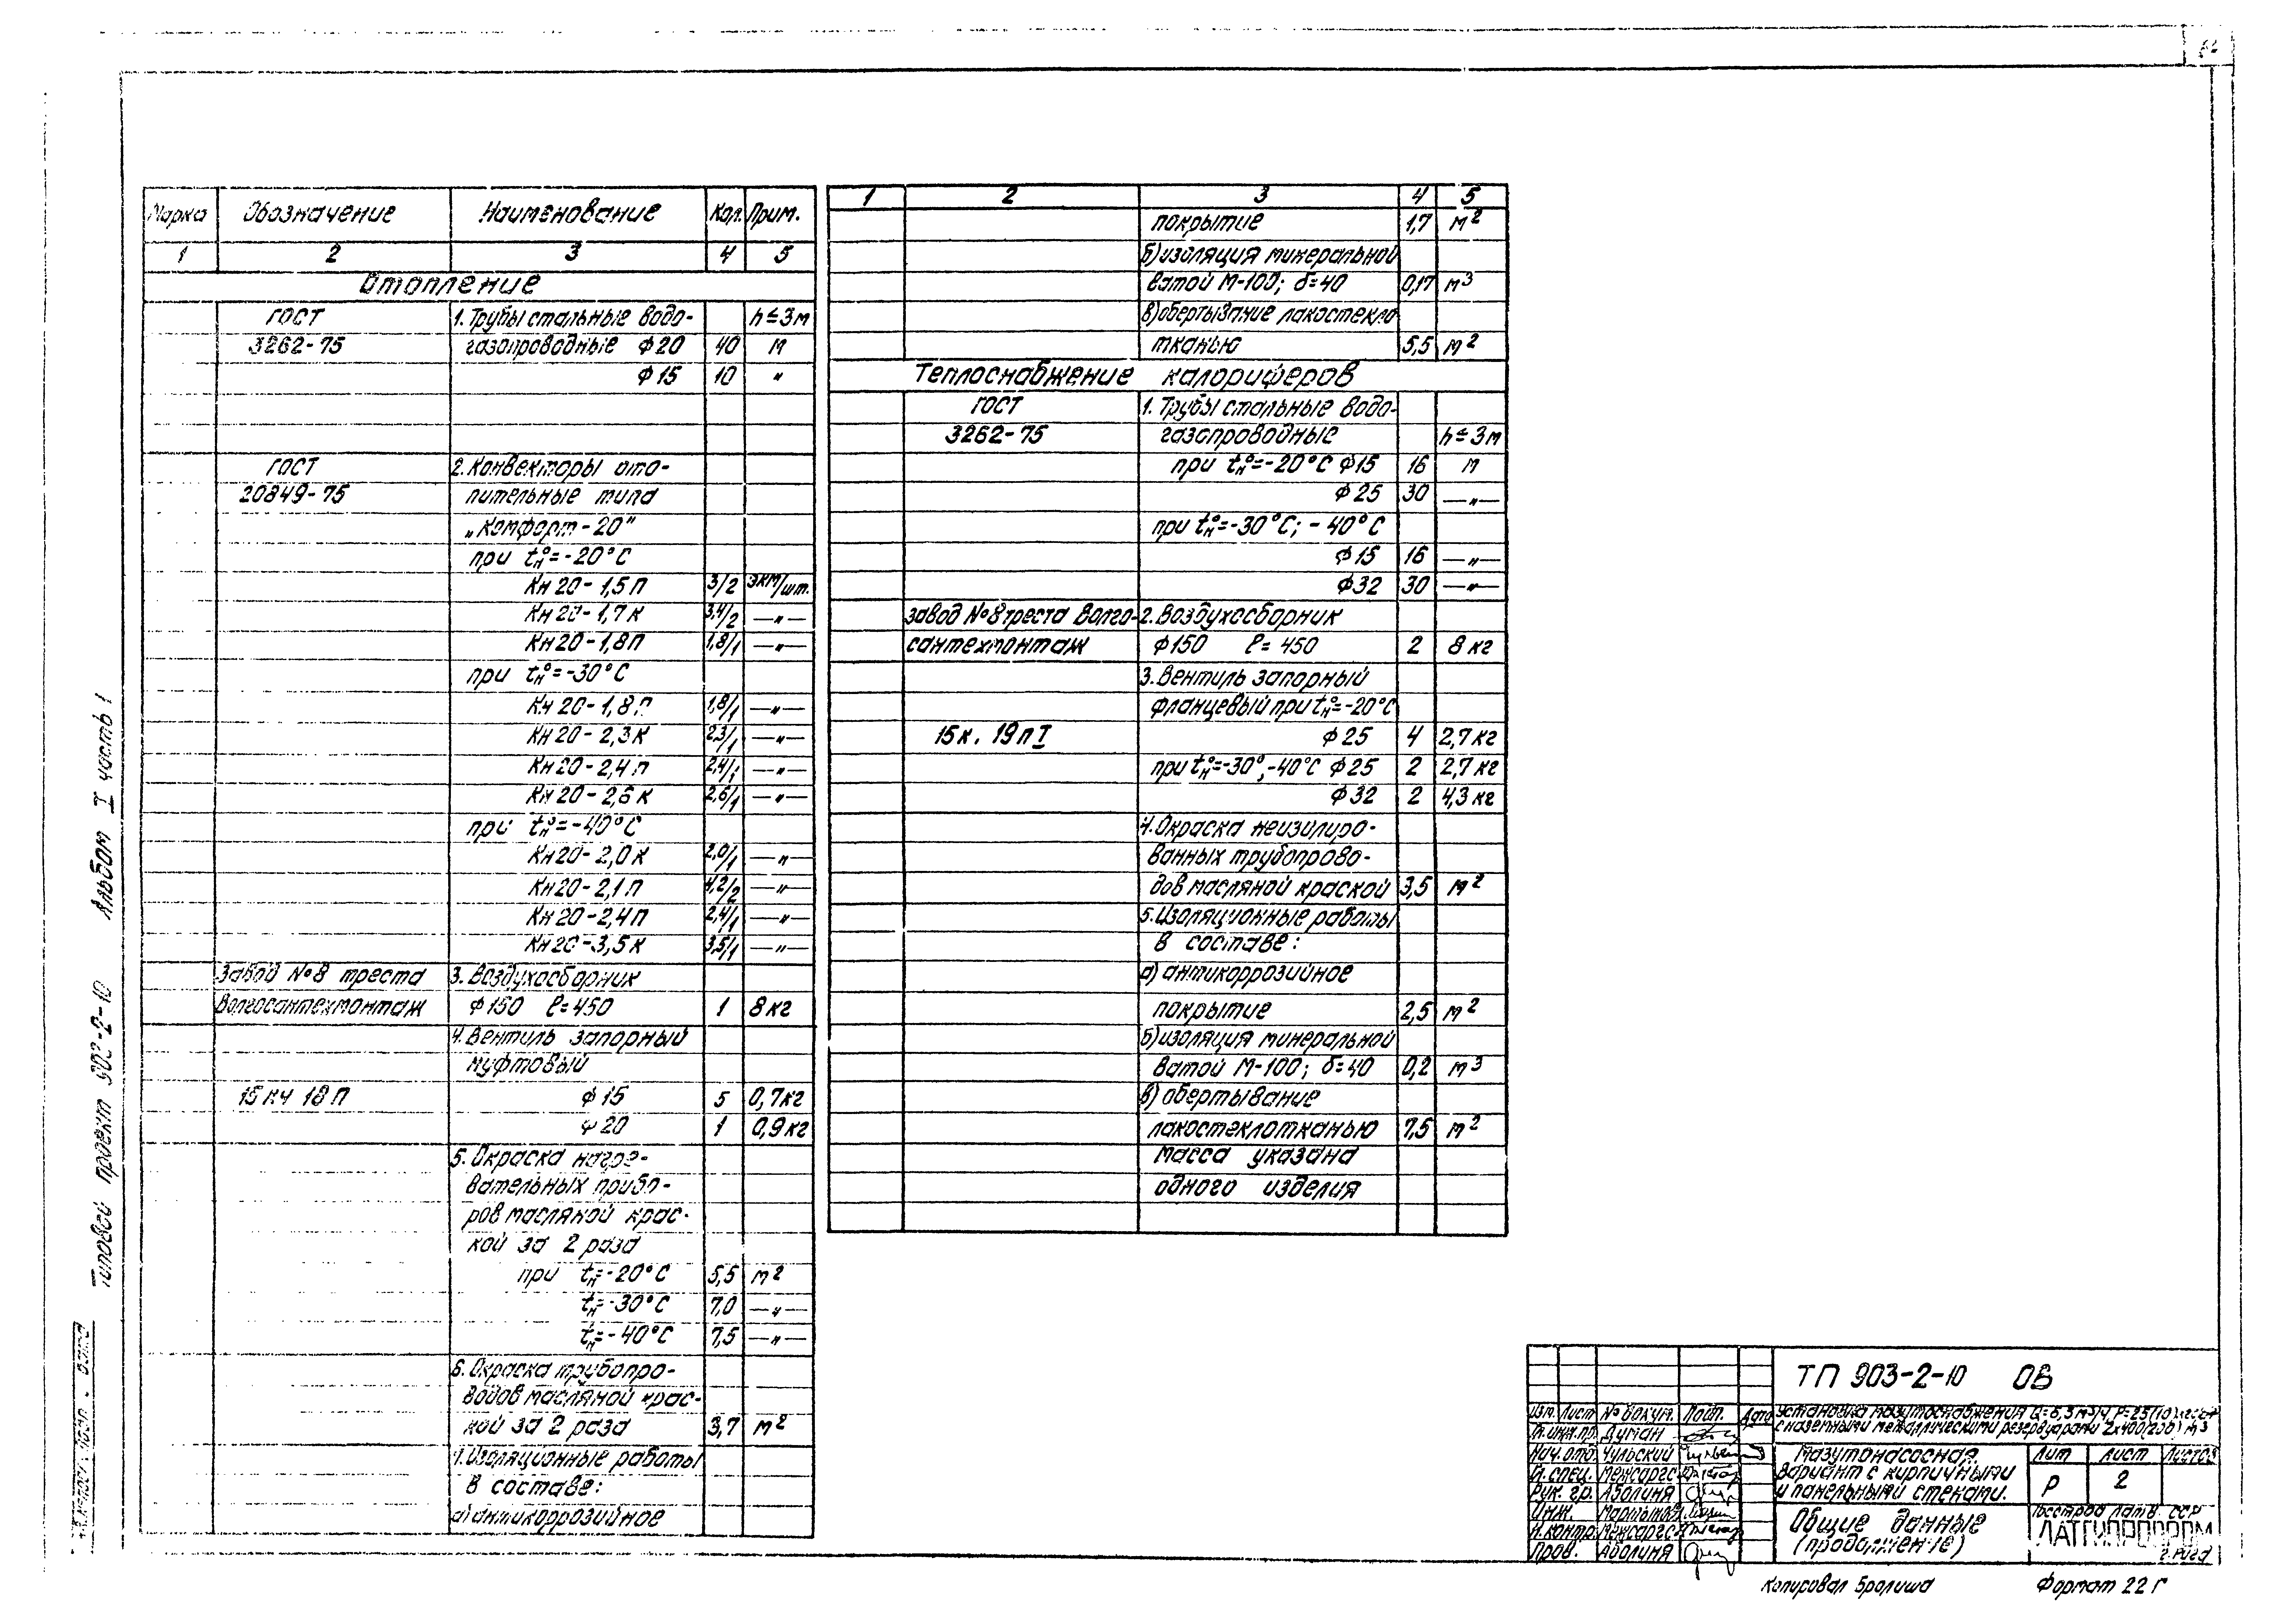 Марка Обозначение Наименование Кол. Прим.
1 2 3 4 5
Отопление
ГОСТ 1. Трубы стальные водо- h≤3м
3262-75 газопроводные ф20 40 м
ф15 10 "
ГОСТ 2. Конвекторы ото-
20849-75 пительные типа
„Комфорт-20"
при tн°=-20°С
Кн 20-1,5П 3/2 ЭКМ/шт.
Кн 20-1,7К 3,4/2 —"—
Кн 20-1,8П 1,8/1 —"—
при tн°=-30°С
Кн 20-1,8П 1,8/1 —"—
Кн 20-2,3К 2,3/1 —"—
Кн 20-2,4П 2,4/1 —"—
Кн 20-2,6К 2,6/1 —"—
при tн°=-40°С
Кн 20-2,0К 2,0/1 —"—
Кн 20-2,1П 4,2/2 —"—
Кн 20-2,4П 2,4/1 —"—
Кн 20-3,5К 3,5/1 —"—
Завод №8 треста 3. Воздухосборник
Волгосантехмонтаж ф150 ℓ=450 1 8кг
4. Вентиль запорный
муфтовый
15кч 18П ф15 5 0,7кг
ф20 1 0,9кг
5. Окраска нагре-
вательных прибо-
ров масляной крас-
кой за 2 раза
при tн=-20°С 5,5 м²
tн=-30°С 7,0 —"—
tн=-40°С 7,5 —"—
6. Окраска трубопро-
водов масляной крас-
кой за 2 раза 3,7 м²
7. Изоляционные работы
в составе:
а) антикоррозийное
1 2 3 4 5
покрытие 1,7 м²
б) изоляция минеральной
ватой М-100; δ=40 0,17 м³
в) обертывание лакостекло
тканью 5,5 м²
Теплоснабжение калориферов
ГОСТ 1. Трубы стальные водо-
3262-75 газопроводные h≤3м
при tн°=-20°С ф15 16 м
ф25 30 —"—
при tн°=-30°С; -40°С
ф15 16 —"—
ф32 30 —"—
завод №8 треста Волго- 2. Воздухосборник
сантехмонтаж ф150 ℓ=450 2 8кг
3. Вентиль запорный
фланцевый при tн°=-20°С
15к. 19пI ф25 4 2,7кг
при tн°=-30°,-40°С ф25 2 2,7кг
ф32 2 4,3кг
4. Окраска неизолиро-
ванных трубопрово-
дов масляной краской 3,5 м²
5. Изоляционные работы
в составе:
а) антикоррозийное
покрытие 2,5 м²
б) изоляция минеральной
ватой М-100; δ=40 0,2 м³
в) обертывание
лакостеклотканью 7,5 м²
Масса указана
одного изделия
Типовой проект 903-2-10 Альбом I часть 1
ТП 903-2-10 ОВ
Изм. Лист № докум. Подп. Дата
Установка мазутоснабжения Q=6,5м³/ч P=25(10)кгс/см²
с наземными металлическими резервуарами 2х400(250)м³
Гл. инж. пр. Думан
Нач. отд. Чульский
Гл. спец. Межсаргс
Рук. гр. Аболиня
Инж.
Н. контр. Межсаргс
Пров. Аболиня
Мазутонасосная.
Вариант с кирпичными
и панельными стенами.
Лит Лист Листов
Р 2
Общие данные
(продолжение)
Госстрой Латв. ССР
ЛАТГИПРОПРОМ
г. Рига
Копировал Бролиша Формат 22 г